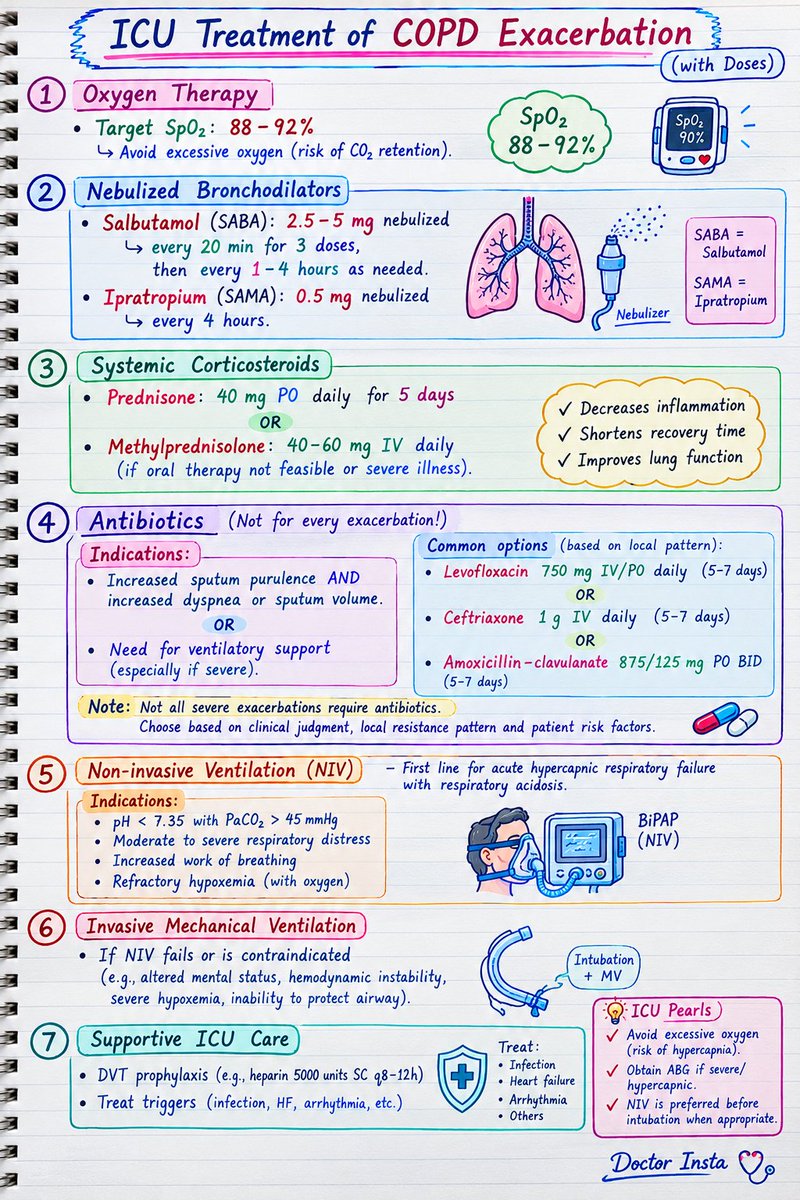 ICU Treatment of COPD Exacerbation
(with Doses)
1 Oxygen Therapy
• Target SpO₂: 88 – 92%
↳ Avoid excessive oxygen (risk of CO₂ retention).
SpO₂
88 – 92%
SpO₂
90%
2 Nebulized Bronchodilators
• Salbutamol (SABA): 2.5 – 5 mg nebulized
↳ every 20 min for 3 doses,
then every 1 – 4 hours as needed.
• Ipratropium (SAMA): 0.5 mg nebulized
↳ every 4 hours.
Nebulizer
SABA =
Salbutamol
SAMA =
Ipratropium
3 Systemic Corticosteroids
• Prednisone: 40 mg PO daily for 5 days
OR
• Methylprednisolone: 40 – 60 mg IV daily
(if oral therapy not feasible or severe illness).
✓ Decreases inflammation
✓ Shortens recovery time
✓ Improves lung function
4 Antibiotics (Not for every exacerbation!)
Indications:
• Increased sputum purulence AND
increased dyspnea or sputum volume.
OR
• Need for ventilatory support
(especially if severe).
Common options (based on local pattern):
• Levofloxacin 750 mg IV/PO daily (5-7 days)
OR
• Ceftriaxone 1 g IV daily (5-7 days)
OR
• Amoxicillin – clavulanate 875/125 mg PO BID
(5-7 days)
Note: Not all severe exacerbations require antibiotics.
Choose based on clinical judgment, local resistance pattern and patient risk factors.
5 Non-invasive Ventilation (NIV)
– First line for acute hypercapnic respiratory failure
with respiratory acidosis.
Indications:
• pH < 7.35 with PaCO₂ > 45 mmHg
• Moderate to severe respiratory distress
• Increased work of breathing
• Refractory hypoxemia (with oxygen)
BiPAP
(NIV)
6 Invasive Mechanical Ventilation
• If NIV fails or is contraindicated
(e.g., altered mental status, hemodynamic instability,
severe hypoxemia, inability to protect airway).
Intubation
+ MV
7 Supportive ICU Care
• DVT prophylaxis (e.g., heparin 5000 units SC q8-12h)
• Treat triggers (infection, HF, arrhythmia, etc.)
Treat:
• Infection
• Heart failure
• Arrhythmia
• Others
ICU Pearls
✓ Avoid excessive oxygen
(risk of hypercapnia).
✓ Obtain ABG if severe/
hypercapnic.
✓ NIV is preferred before
intubation when appropriate.
Doctor Insta